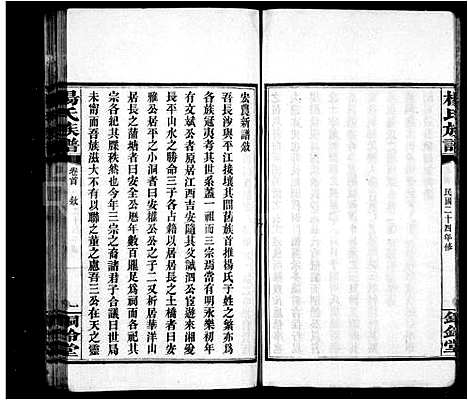 楊氏族譜
民國二十四年修
銅鈴堂
宏農新譜敘
吾長沙與平江接壤其間舊族首推楊氏子姓之繁亦爲
各族冠夷考其世系蓋一祖而三宗焉當有明永樂初年
有文斌公者原居江西吉安隨其父誠泗公宦遊來湘愛
長平山水之勝命三子各占籍以居居長之土橋者曰安
雅公居平之小洞者曰安權公公之子二又析居華洋山
居長之蒲塘者曰安全公歷年數百醵足爲祠而各祀其
宗各紀其牒秩然也今年三宗之裔諸君子合議曰世局
未甯而吾族滋大不有以聯之董之慮吾三公在天之靈
楊氏族譜
卷首 敘
一
銅鈴堂